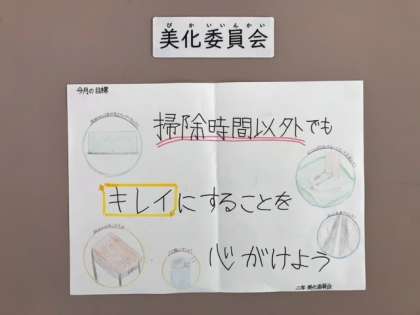 びかいいんかい
美化委員会
今月の目標
掃除時間以外でも
キレイにすることを
心がけよう
二年 美化委員会